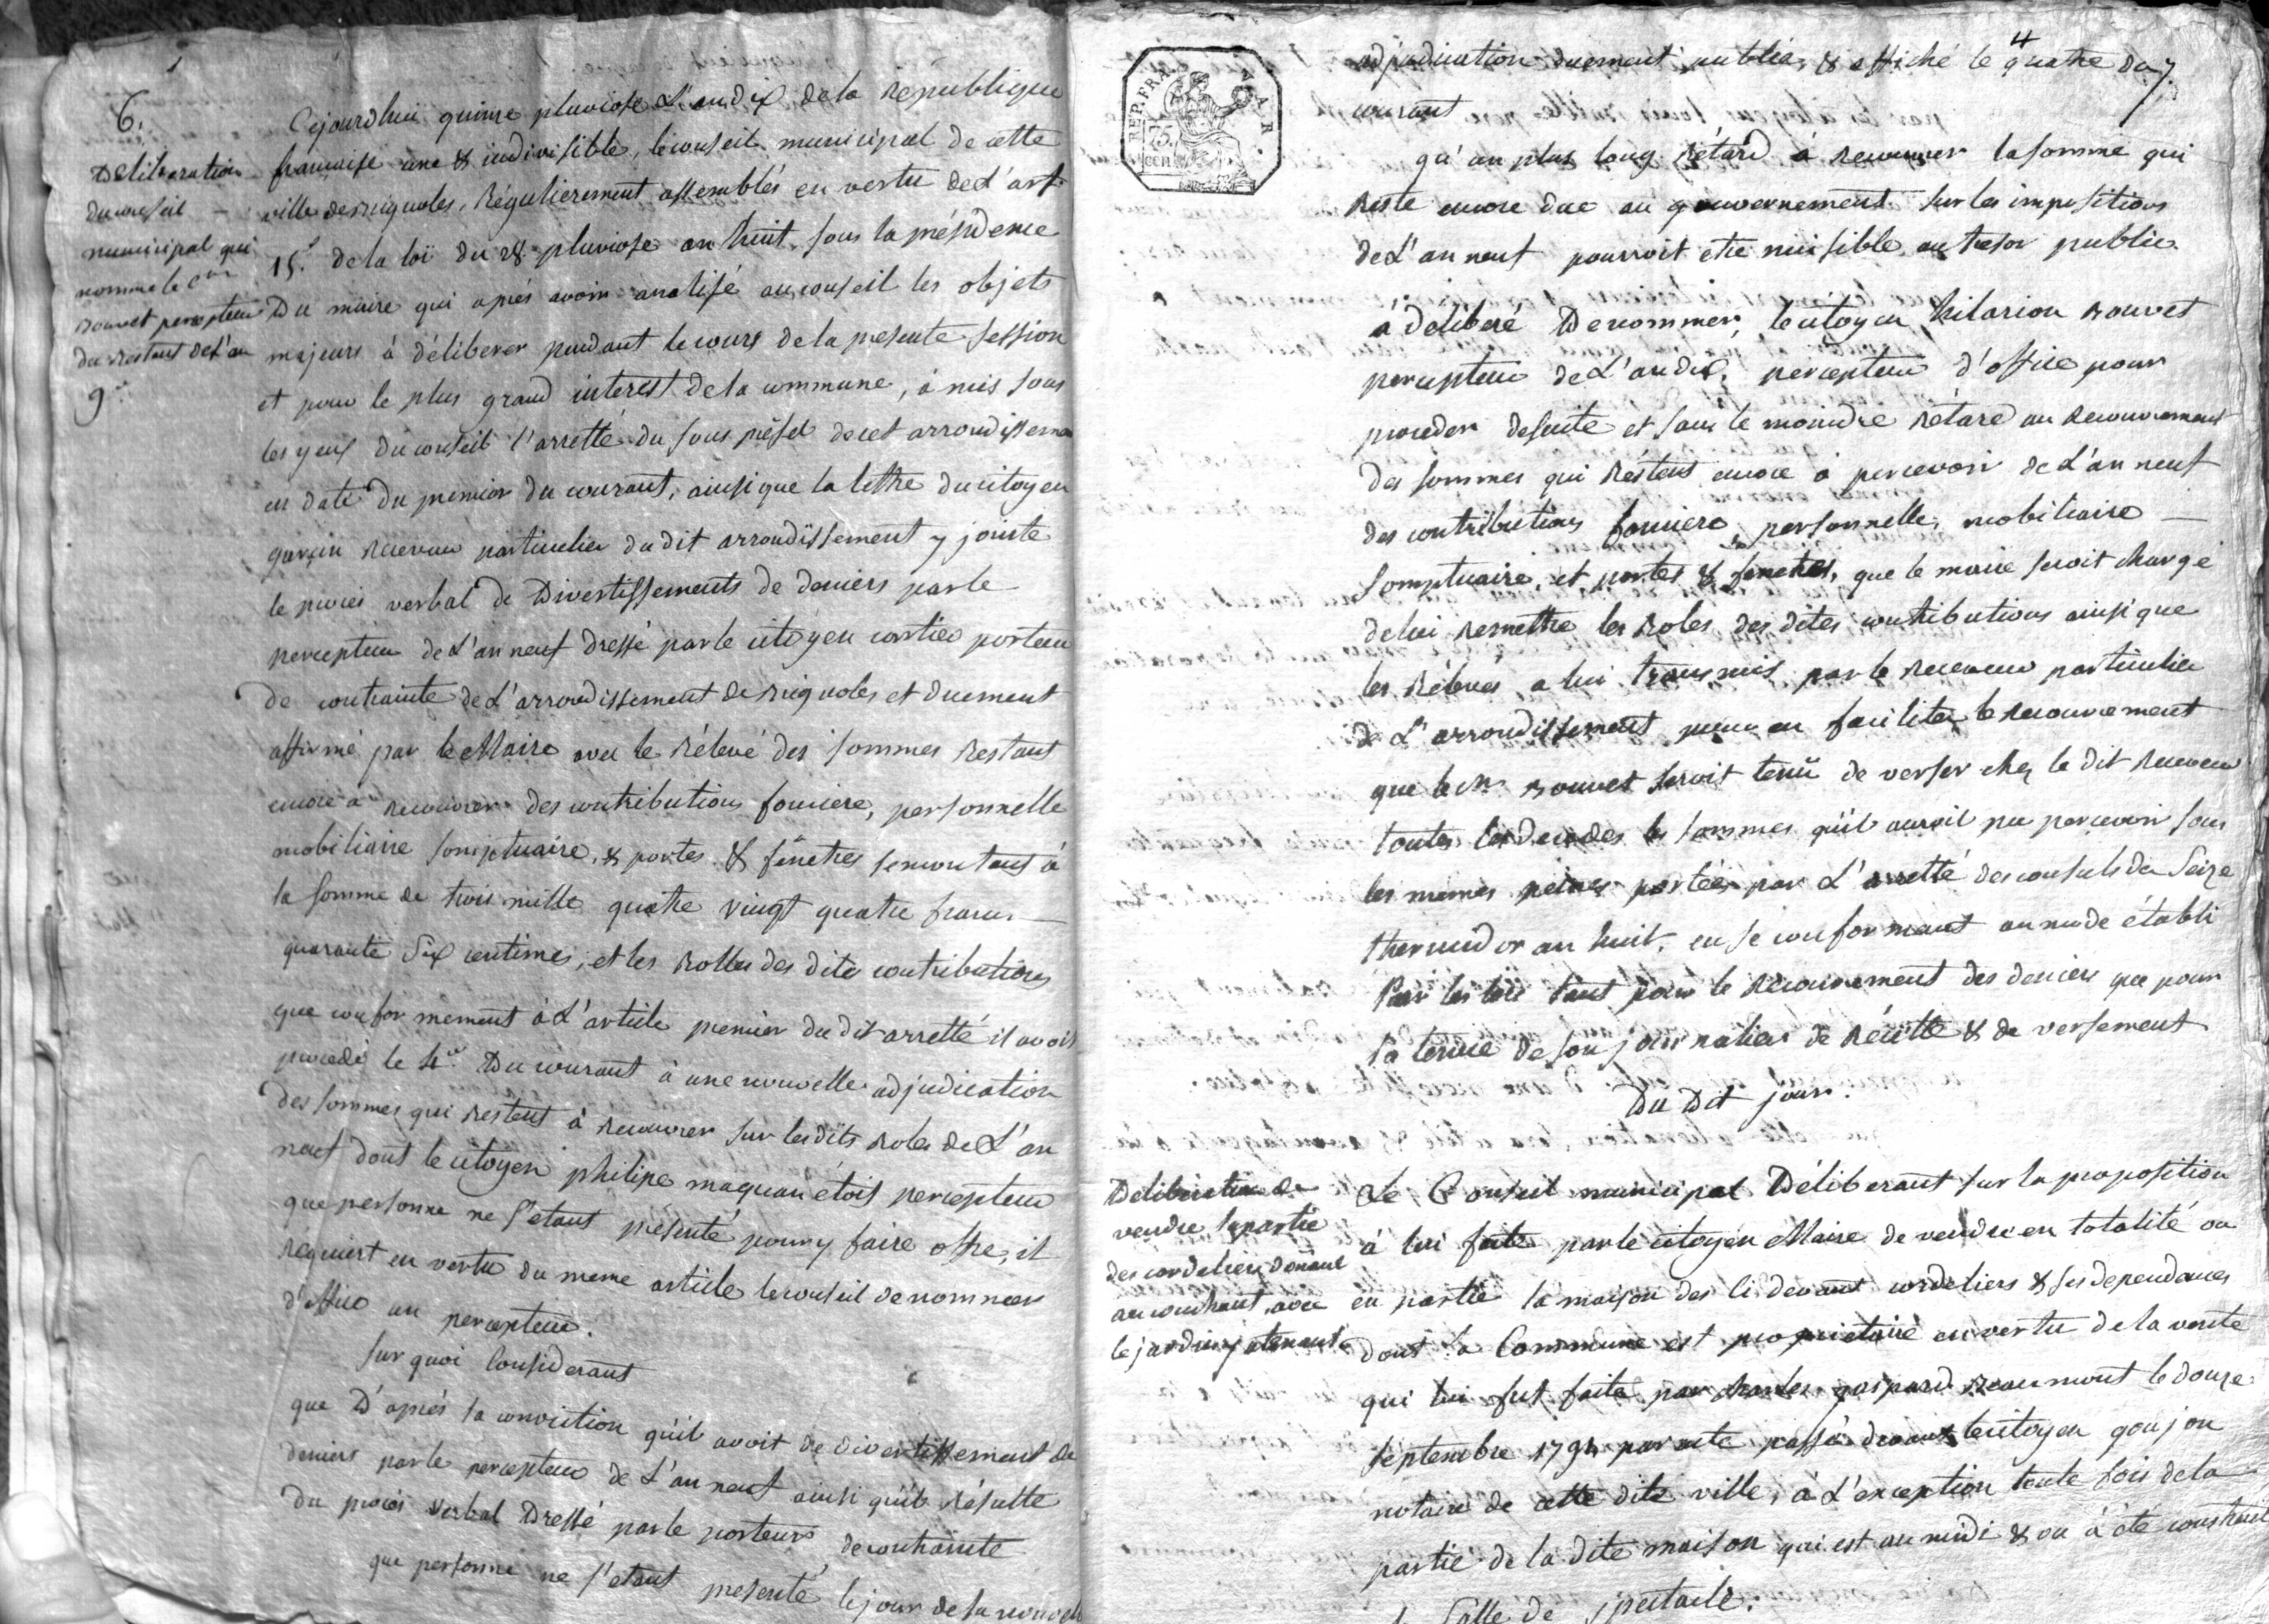 6.
Deliberation
du conseil
municipal qui
nomme le c.en
rouvet percepteur
du restant de L'an
9.e
Cejourdhui quinze pluviose L'an dix de la république
francaise une & indivisible, le conseil municipal de cette
ville de Brignoles, régulierement assemblés en vertu de L'art.
15.e de la loi du 28 pluviose an huit, sous la présidence
Du maire qui aprés avoir analisé au conseil les objets
majeurs à déliberer pendant le cours de la présente session
et pour le plus grand interest de la commune, à mis sous
les yeux du conseil l'arretté du sous préfet de cet arrondissement
en date du premier du courant, ainsi que la lettre du citoyen
garcin receveur particulier du dit arrondissement y jointe
le procés verbal de Divertissements de deniers par le
percepteur de L'an neuf dressé par le citoyen cortier porteur
de contrainte de L'arrondissement de Brignoles et duement
affirmé par le Maire avec le rélevé des sommes restant
encore a recouvrer des contributions fonciere, personnelle
mobiliaire somptuaire, & portes & fenetres se montant à
la somme de trois mille quatre vingt quatre francs
quarante six centimes, et les rolles des dites contributions
que conformement à L'article premier du dit arretté il avoit
procedé le 4.e Du courant à une nouvelle adjudication
des sommes qui restent à recouvrer sur les dits roles de L'an
neuf dont le citoyen philipe maquan étoit percepteur
que personne ne s'etant présenté pour y faire offre, il
réquiert en vertu du meme article le conseil de nommer
d'office un percepteur.
Sur quoi Considerant
que D'aprés la conviction qu'il avoit de divertissement de
deniers par le percepteur de L'an neuf ainsi qu'il résulte
du procés verbal Dressé par le porteur de contrainte
que personne ne s'etant présenté le jour de la nouvelle
4
7.
REP. FRA.
75.
cen
adjudication duement publiée, & affiché le quatre du
courant
qu'un plus long rétard à recouvrer la somme qui
reste encore due au gouvernement sur les impositions
de L'an neuf pourroit etre nuisible au tresor public
à déliberé De nommer, le citoyen hilarion rouvet
percepteur de L'an dix, percepteur d'office pour
proceder desuite et sans le moindre rétard au recouvrement
des sommes qui réstent encore à percevoir de L'an neuf
des contributions fonciere, personnelle, mobiliaire
somptuaire, et portes & fenetres, que le maire seroit chargé
de lui remettre les roles des dites contributions ainsi que
les rélevés a lui transmis par le receveur particulier
de L'arrondissement pour en faciliter le recouvrement
que le c.en rouvet seroit tenû de verser chez le dit receveur
toutes les decades les sommes qu'il auroit pu percevoir sous
les memes peines portées par L'arretté des consuls du Seize
thermidor an huit, en se conformant au mode établi
Par les lois tant pour le récouvrement des deniers que pour
la tenue de son journalier de récette & de versement.
Du Dit jour.
Deliberation de
vendre la partie
des cordeliers donant
au couchant, avec
le jardin y atenant
Le Conseil municipal Déliberant sur la proposition
à lui faite par le citoyen Maire de vendre en totalité ou
en partie la maison des ci devant cordeliers & ses dependances
dont la Commune est proprietaire en vertu de la vente
qui lui fut faite par charles gaspard reaumont le douze
septembre 1792 par acte passé devant le citoyen goujon
notaire de cette dite ville, à L'exception toute fois de la
partie de la dite maison qui est au midi & ou à été construit
Salle de Spectacle.